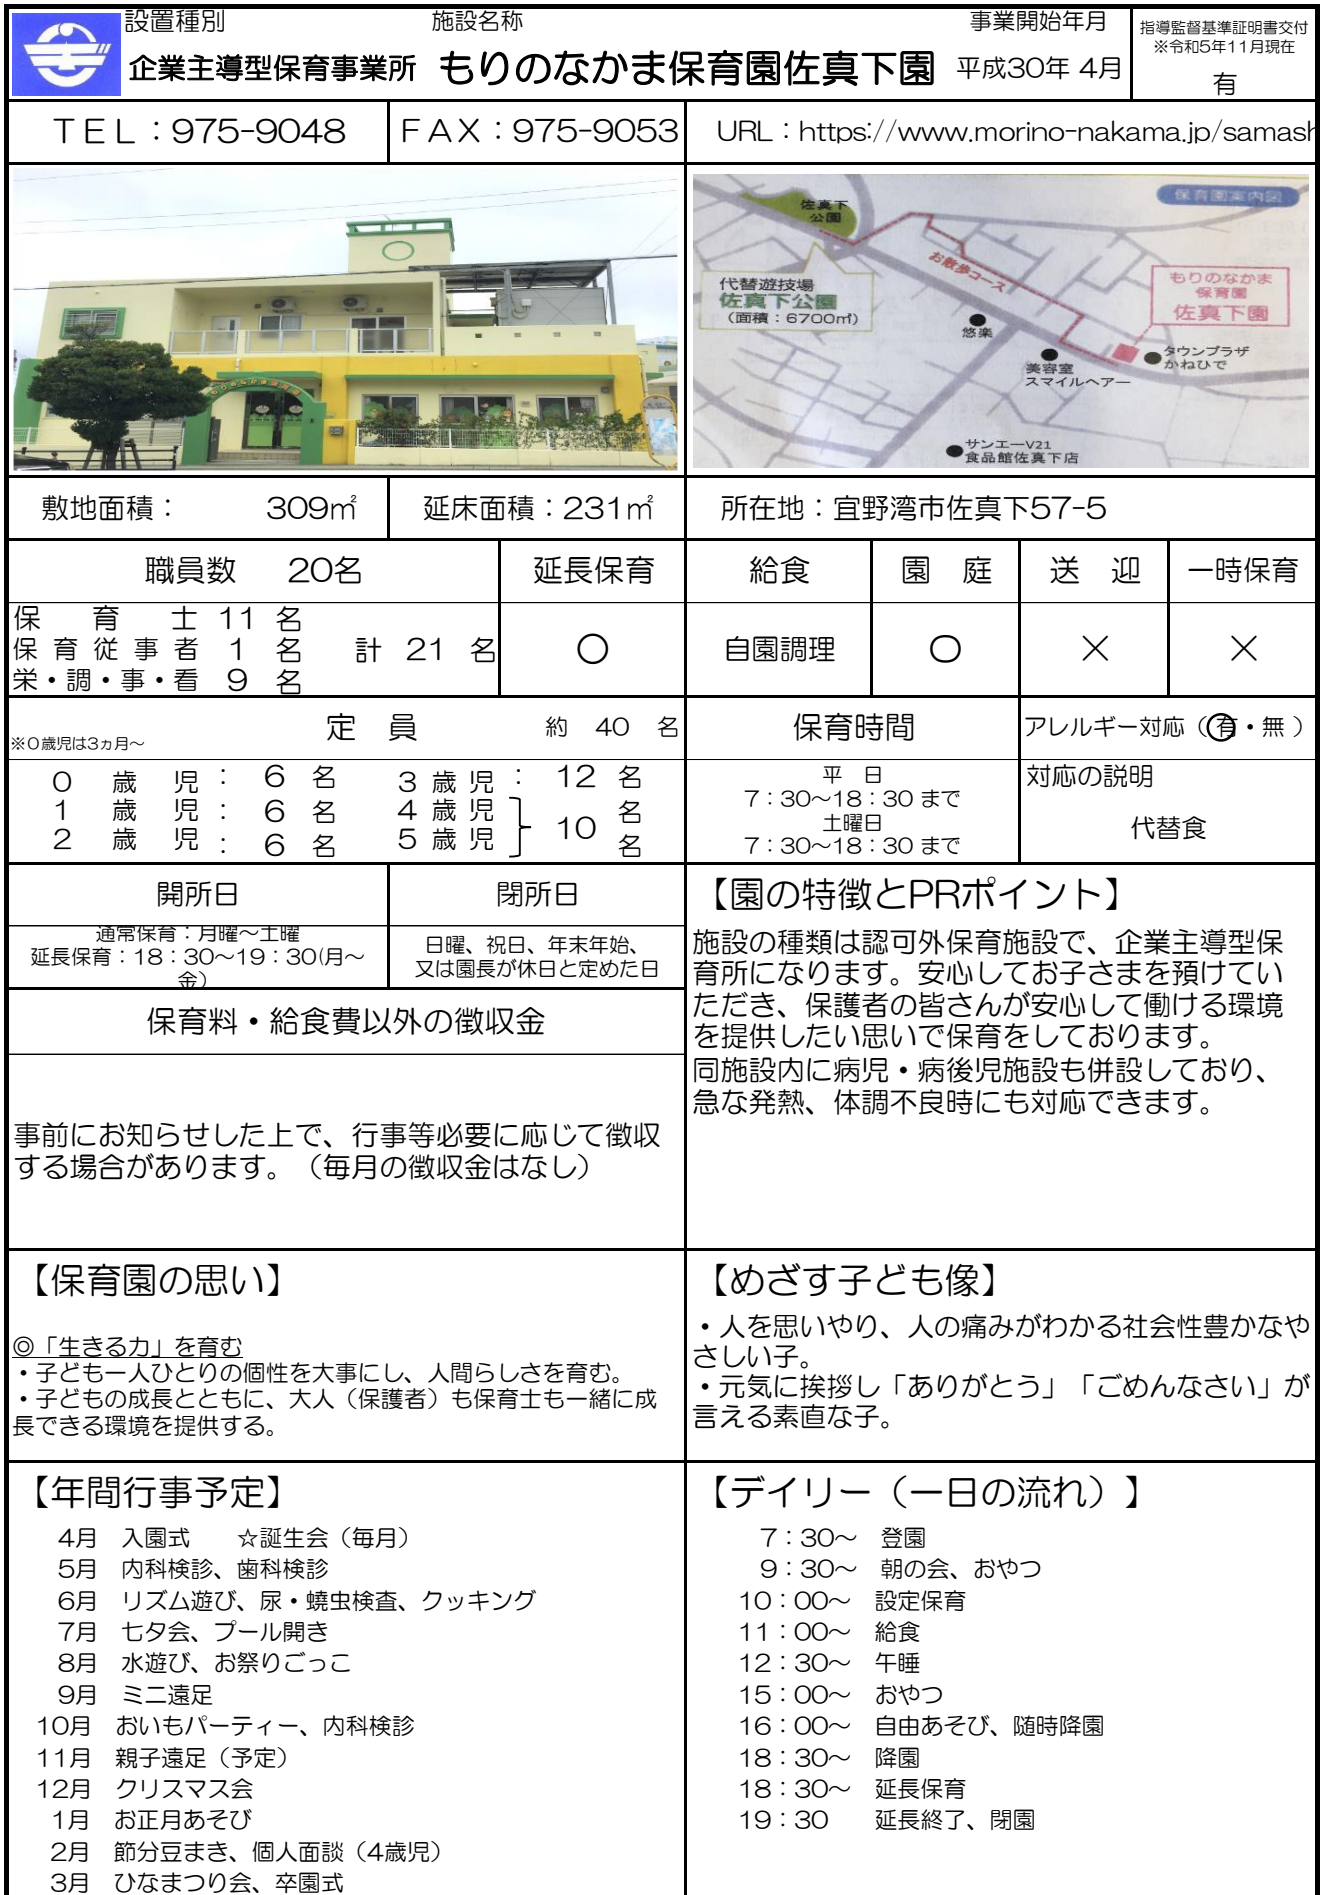 設置種別 施設名称 事業開始年月
企業主導型保育事業所 もりのなかま保育園佐真下園 平成30年 4月
指導監督基準証明書交付
※令和5年11月現在
有
ＴＥＬ：975-9048 ＦＡＸ：975-9053 URL：https://www.morino-nakama.jp/samash
保育園案内図
佐真下
公園
お散歩コース
代替遊技場
佐真下公園
（面積：6700㎡）
もりのなかま
保育園
佐真下園
悠楽
タウンプラザ
かねひで
美容室
スマイルヘアー
サンエーV21
食品館佐真下店
敷地面積： 309㎡ 延床面積：231㎡ 所在地：宜野湾市佐真下57-5
職員数 20名 延長保育 給食 園 庭 送 迎 一時保育
保 育 士 11 名
保 育 従 事 者 1 名 計 21 名 〇 自園調理 〇 × ×
栄・調・事・看 9 名
※０歳児は3ヵ月～ 定 員 約 40 名 保育時間 アレルギー対応（有・無）
0 歳 児： 6 名 3 歳 児： 12 名
1 歳 児： 6 名 4 歳 児 名
2 歳 児： 6 名 5 歳 児 10 名
平 日
7：30～18：30 まで
土曜日
7：30～18：30 まで
対応の説明
代替食
開所日 閉所日
通常保育：月曜～土曜
延長保育：18：30～19：30(月～
金)
日曜、祝日、年末年始、
又は園長が休日と定めた日
保育料・給食費以外の徴収金
事前にお知らせした上で、行事等必要に応じて徴収
する場合があります。（毎月の徴収金はなし）
【園の特徴とPRポイント】
施設の種類は認可外保育施設で、企業主導型保
育所になります。安心してお子さまを預けてい
ただき、保護者の皆さんが安心して働ける環境
を提供したい思いで保育をしております。
同施設内に病児・病後児施設も併設しており、
急な発熱、体調不良時にも対応できます。
【保育園の思い】
◎「生きる力」を育む
・子ども一人ひとりの個性を大事にし、人間らしさを育む。
・子どもの成長とともに、大人（保護者）も保育士も一緒に成
長できる環境を提供する。
【めざす子ども像】
・人を思いやり、人の痛みがわかる社会性豊かなや
さしい子。
・元気に挨拶し「ありがとう」「ごめんなさい」が
言える素直な子。
【年間行事予定】
4月 入園式 ☆誕生会（毎月）
5月 内科検診、歯科検診
6月 リズム遊び、尿・蟯虫検査、クッキング
7月 七夕会、プール開き
8月 水遊び、お祭りごっこ
9月 ミニ遠足
10月 おいもパーティー、内科検診
11月 親子遠足（予定）
12月 クリスマス会
1月 お正月あそび
2月 節分豆まき、個人面談（4歳児）
3月 ひなまつり会、卒園式
【デイリー（一日の流れ）】
7：30～ 登園
9：30～ 朝の会、おやつ
10：00～ 設定保育
11：00～ 給食
12：30～ 午睡
15：00～ おやつ
16：00～ 自由あそび、随時降園
18：30～ 降園
18：30～ 延長保育
19：30 延長終了、閉園